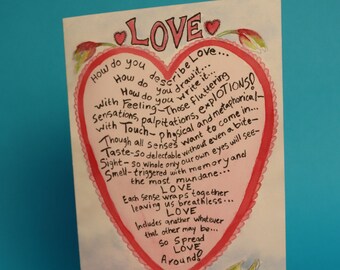 LOVE
How do you describe LOVE...
How do you draw it...
How do you write it...
With Feeling-Those fluttering
Sensations, palpitations, EXPLOTIONS?
With Touch- physical and metaphorical-
Though all senses want to come in...
Taste-so delectable without even a bite-
Sight-so whole only our own eyes will see-
Smell-triggered with memory and
the most mundane...
LOVE
Each sense wraps together
leaving us breathless...
LOVE
Includes another whatever
that other may be...
So Spread
LOVE
Around?